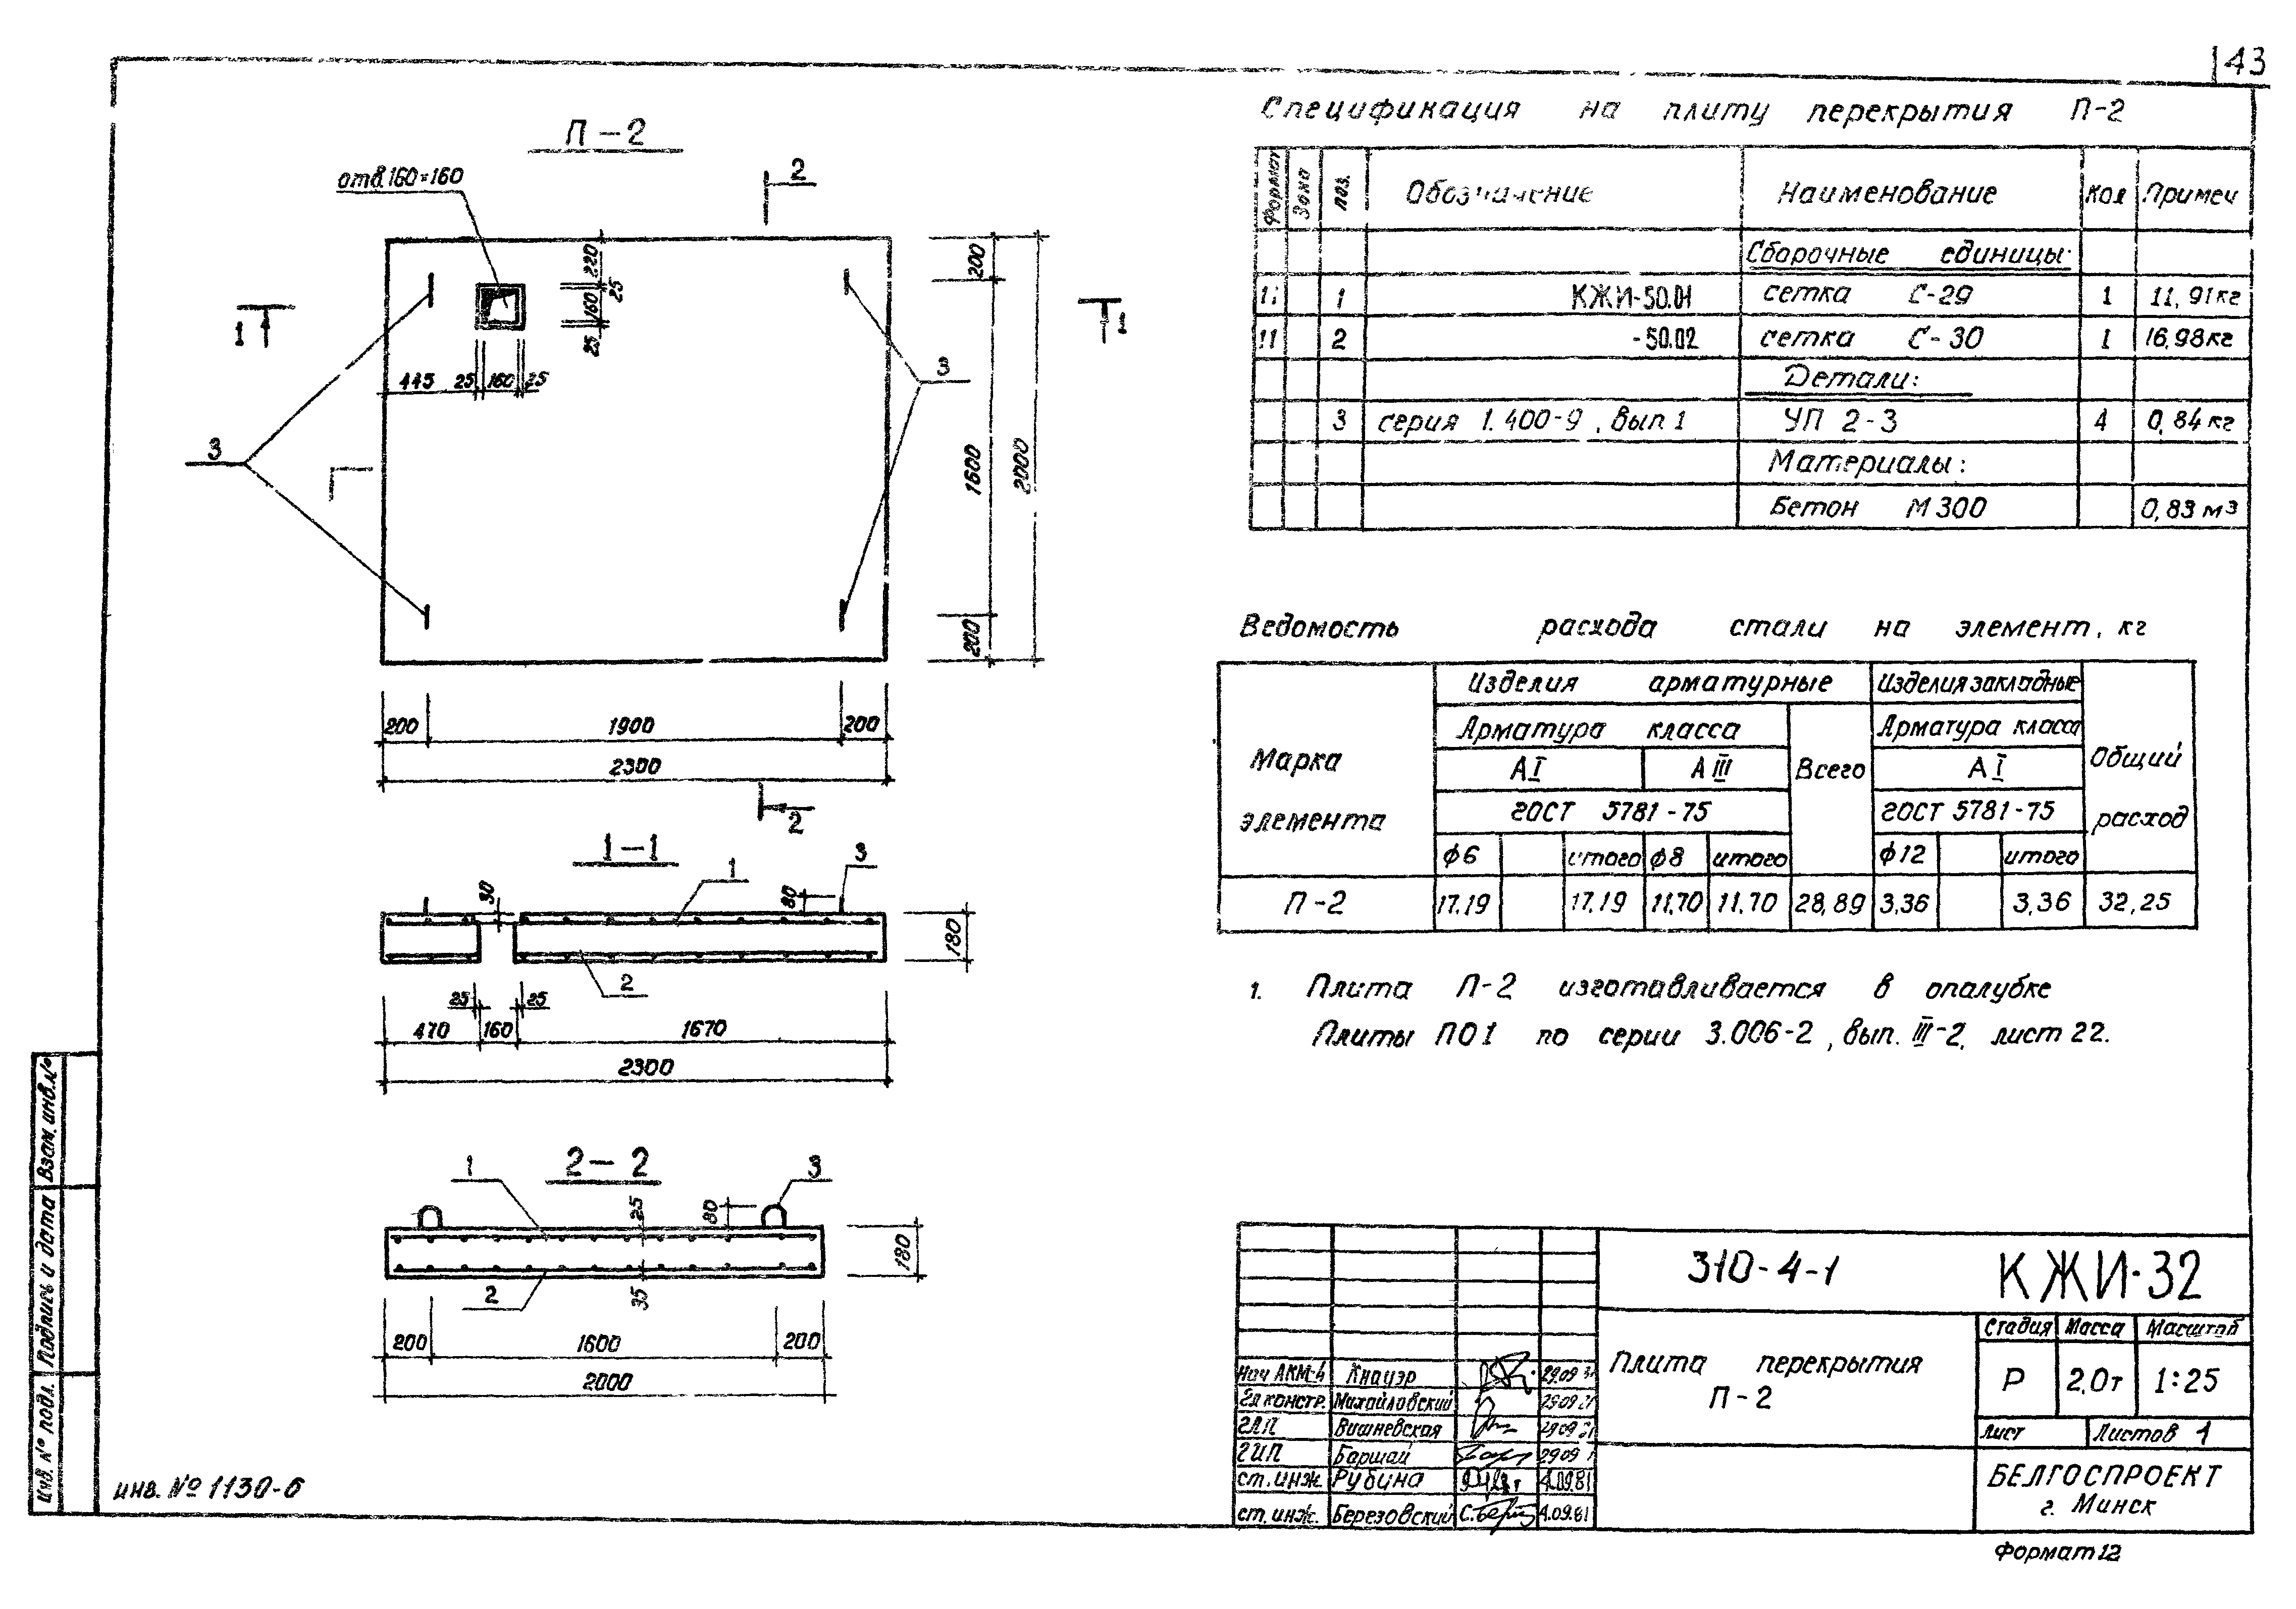 43
П-2
отв.160×160
2
220
25
160
25
445 25 160 25
1
1
3
3
200
1600
2000
200
200 1900 200
2300
2
1-1
30
1
80
3
2
180
25 25
470 160 1670
2300
2-2
1
25
80
3
180
2
35
200 1600 200
2000
Спецификация на плиту перекрытия П-2
Формат Зона поз. Обозначение Наименование Кол Примеч
Сборочные единицы:
11 1 КЖИ-50.01 сетка С-29 1 11,91кг
11 2 -50.02 сетка С-30 1 16,98кг
Детали:
3 серия 1.400-9, вып 1 УП 2-3 4 0,84кг
Материалы:
Бетон М300 0,83 м³
Ведомость расхода стали на элемент, кг
Марка элемента Изделия арматурные Изделия закладные Общий расход
Арматура класса Всего Арматура класса
АI АIII АI
ГОСТ 5781-75 ГОСТ 5781-75
ф6 итого ф8 итого ф12 итого
П-2 17.19 17.19 11,70 11.70 28,89 3,36 3,36 32,25
1. Плита П-2 изготавливается в опалубке
Плиты ПО1 по серии 3.006-2, вып. III-2, лист 22.
310-4-1 КЖИ-32
Плита перекрытия
П-2
Стадия Масса Масштаб
Р 2,0т 1:25
лист Листов 1
БЕЛГОСПРОЕКТ
г. Минск
Нач АКМ-4 Кнауэр 29.09
Гл констр. Михайловский 29.09
ГАП Вишневская 29.09
ГИП Баршай 29.09
ст. инж. Рубина 4.09.81
ст. инж. Березовский 4.09.81
Формат 12
Взам. инв.№
Подпись и дата
Инв. № подл.
инв. № 1130-6